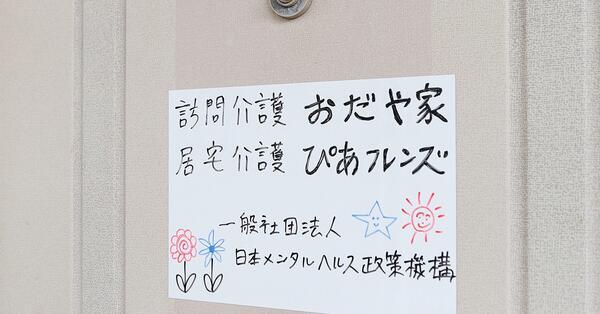 訪問介護 おだや家
居宅介護 ぴあフレンズ
一般社団法人
日本メンタルヘルス政策機構